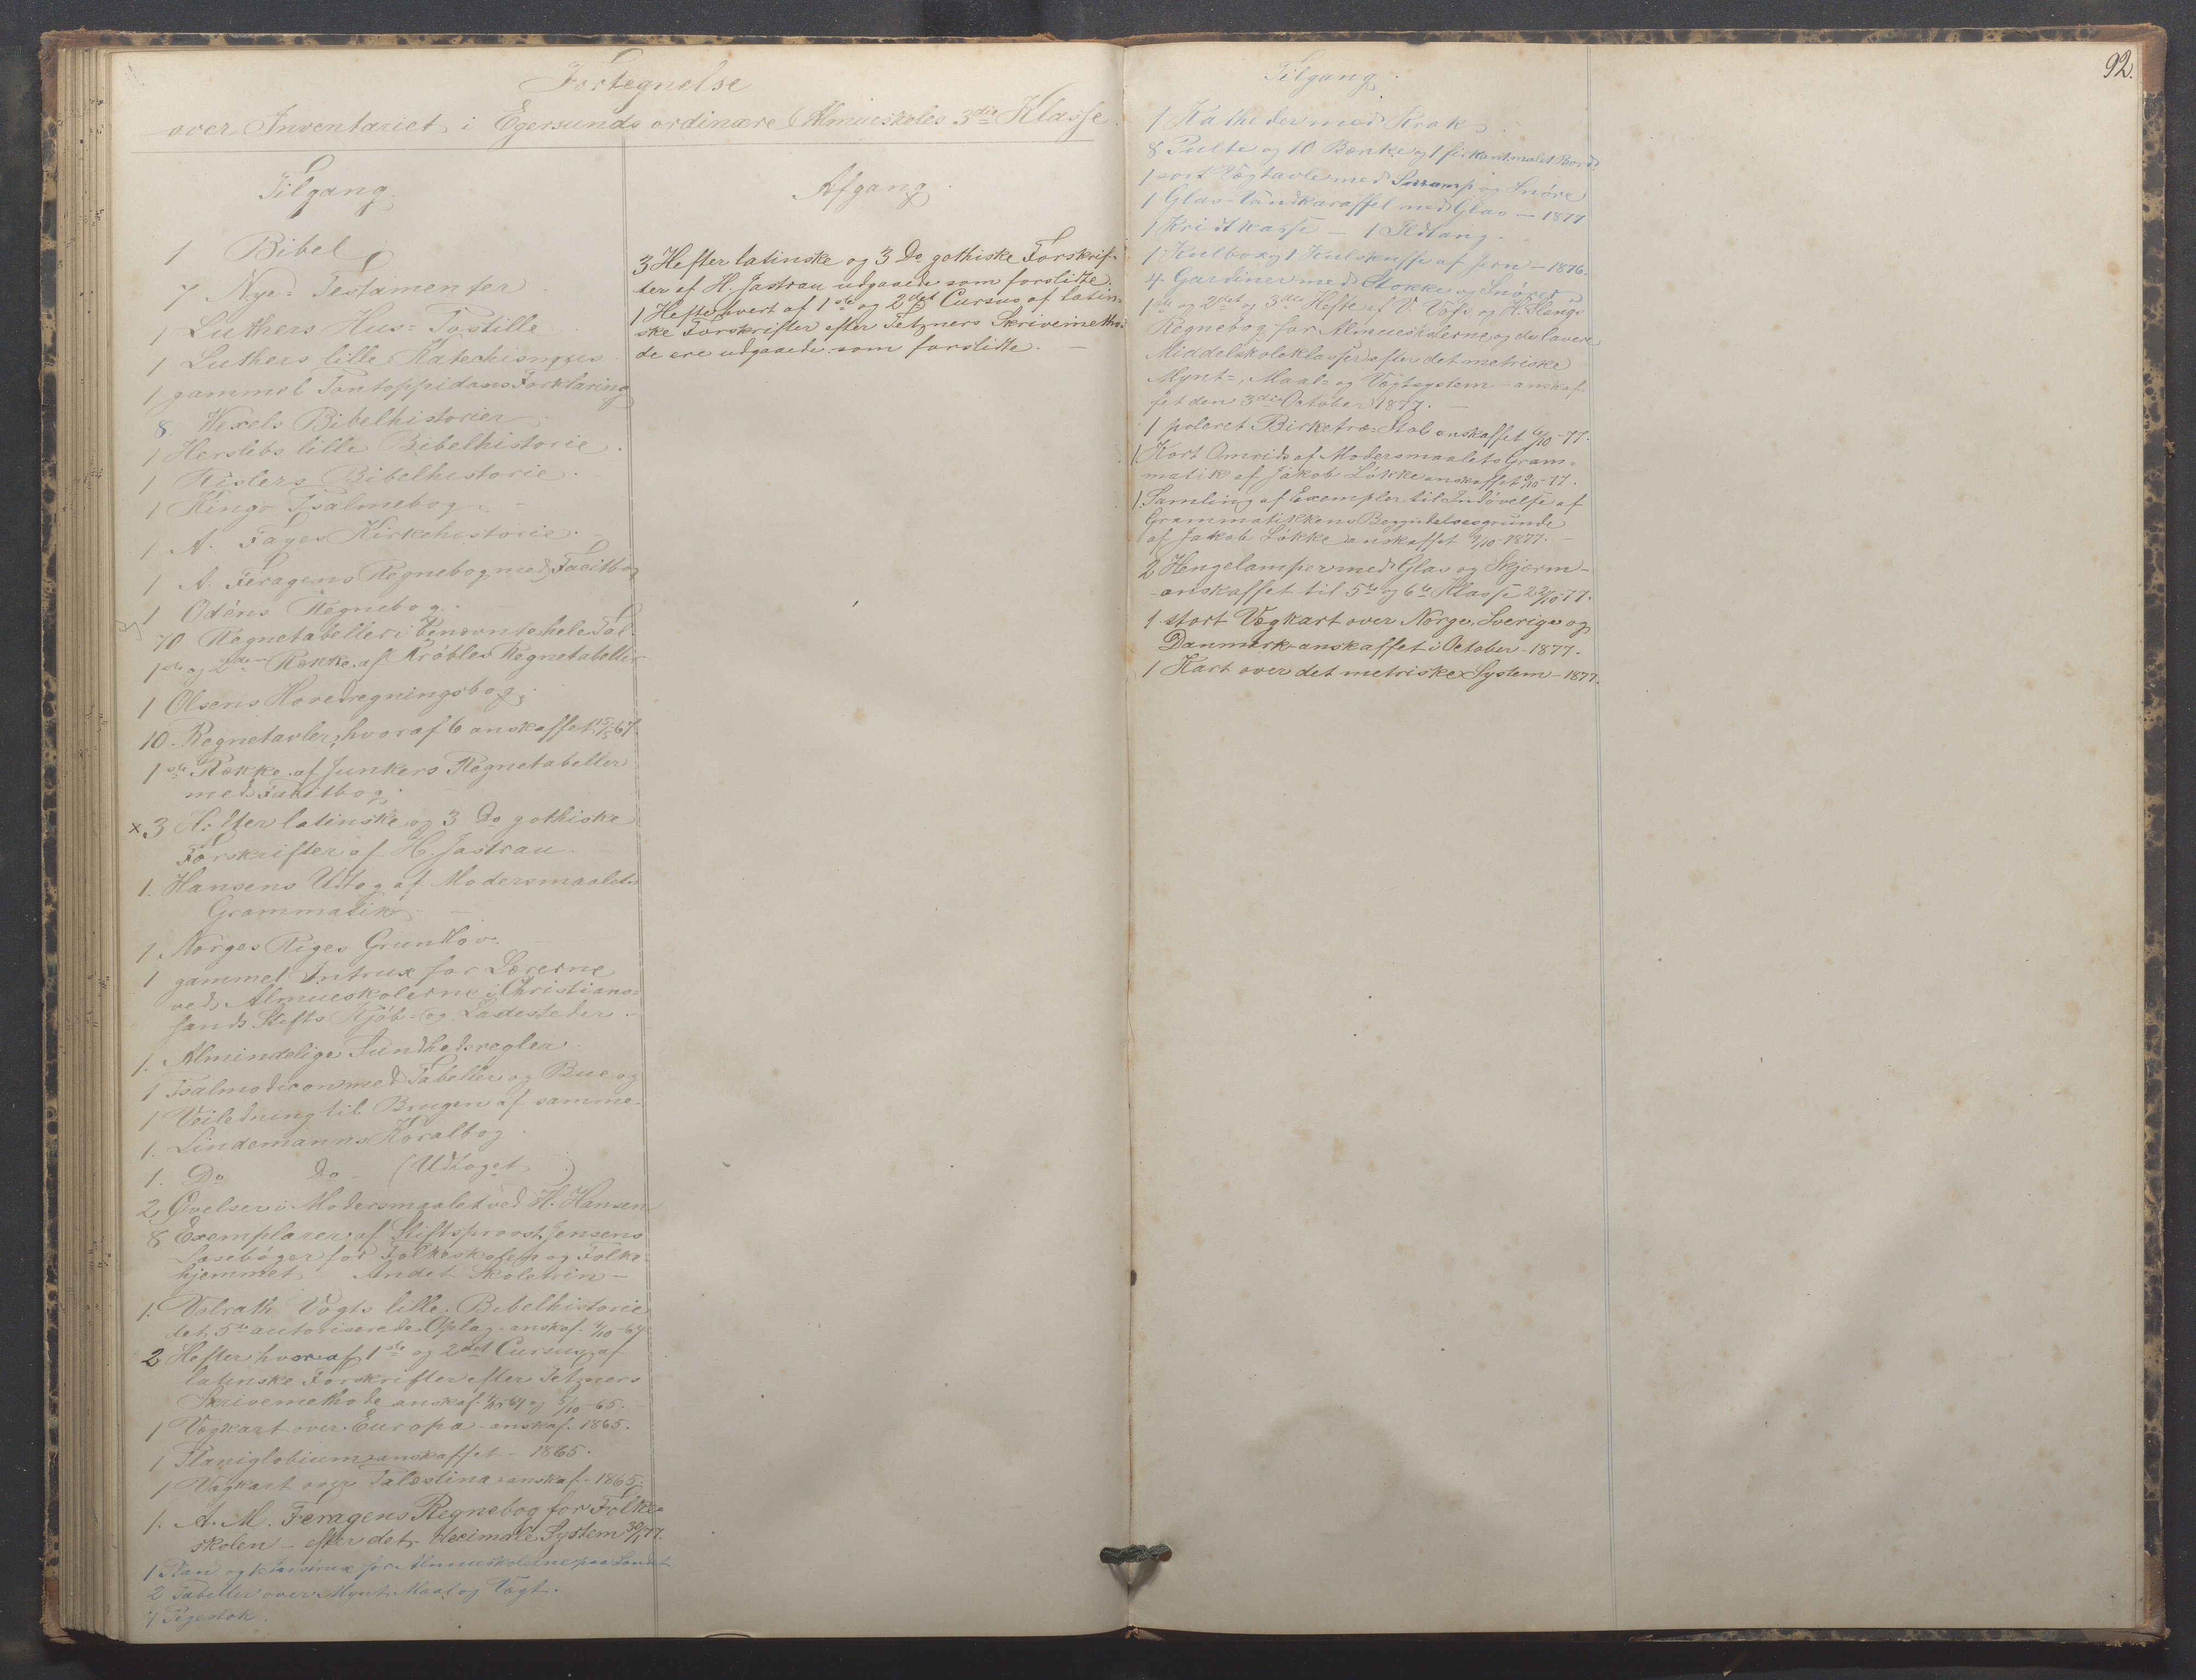 Fortegnelse
over Inventariet i Egersunds ordinære Almueskoles 3die Klasse
Tilgang.
1 Bibel
7 Nye-Testamenter
1 Luthers Hus-Postille
1 Luthers lille Katechismus
1 gammel Pontoppidans Forklaring
8. Wexels Bibelhistorier
1 Herslebs lille Bibelhistorie.
1 Bibelhistorie.
1 Kingo Psalmebog
1 A. Fayes Kirkehistorie.
1 A. Feragens Regnebog med Facitbog
1 Odéns Regnebog.
70 Regnetabeller i Benævnte hele Tal.
1ste og 2den Række af Krøbles Regnetabeller
1 Olsens Hovedregningsbog.
10. Regnetavler, hvoraf 6 anskaffet 15/5-67.
1ste Række af Junkers Regnetabeller
med Facitbog.
x 3 Hefter latinske og 3 Do gothiske
Forskrifter af H. Jastrau.
1. Hansens Udtog af Modersmaalets
Grammatik
1. Norges Riges Grundlov.
1 gammel Intrux for Lærerne
ved Almueskolerne i Christians-
sands Stifts Kjøb- og Ladesteder.
1. Almindelige Sundhedsregler.
1 Psalmodicon med Tabeller og Bue og
1 Veiledning til Brugen af samme.
1. Lindemanns Koralbog.
1. Do do (Udtoget)
2 Øvelser i Modersmaalet ved H. Hansen
8 Exemplarer af Stiftsprovst Jensens
Læsebøger for Folkeskolen og Folke-
hjemmet Andet Skoletrin –
1. Volrath Vogts lille Bibelhistorie
det 5te autoriserede Oplag – anskaf. 4/10-67.
2 Hefter hvoraf 1ste og 2det Cursus af
latinske Forskrifter efter Tetzners
Skrivemethode anskaf. og 5/10-65.
1 Vægkart over Europa – anskaf. 1865.
1 Planiglobium anskaffet – 1865.
1 Vægkart over Palestina anskaf. 1865.
1. A. M. Feragens Regnebog for Folke-
skolen – efter det decimale System 30/1 77.
1 Plan og 1 Instrux for Almueskolerne paa Landet
2 Tabeller over Mynt, Maal og Vægt.
1 Pegestok.
Afgang.
3 Hefter latinske og 3 Do gothiske Forskrif-
ter af H. Jastrau udgaaede som forslidte.
1 Hefte hvert af 1ste og 2det Cursus af latin-
ske Forskrifter efter Tetzners Skrivemetho-
de ere udgaaede som forslidte. –
92.
Tilgang.
1 Katheder med Krak.
8 Pulte og 10 Bænke og 1 firkant malet Bord.
1 sort Vægtavle med Svamp og Snøre
1 Glas-Vandkaraffel med Glas – 1877
1 Kridtkasse – 1 Ildtang.
1 Kulbox og 1 Kulskuffe af Jern – 1876.
4 Gardiner med Stokke og Snører
1ste og 2det og 3die Hefte af V. Voss og K. Slangs
Regnebog for Almueskolerne og de lavere
Middelskoleklasser efter det metriske
Mynt-, Maal- og Vægtsystem – anskaf-
fet den 3die October 1877. –
1 poleret Birketræ-Stol anskaffet 6/10-77.
1 Kort Omrids af Modersmaalets Gram-
matik af Jakob Løkke anskaffet 9/10-77.
1. Samling af Exempler til Indøvelse af
Grammatikkens Begyndelsesgrunde
af Jakob Løkke anskaffet 9/10-1877. –
2 Hengelamper med Glas og Skjerm –
anskaffet til 5te og 6te Klasse 22/10-77.
1 stort Vægkart over Norge, Sverige og
Danmark anskaffet i October – 1877.
1 Kart over det metriske System – 1877.